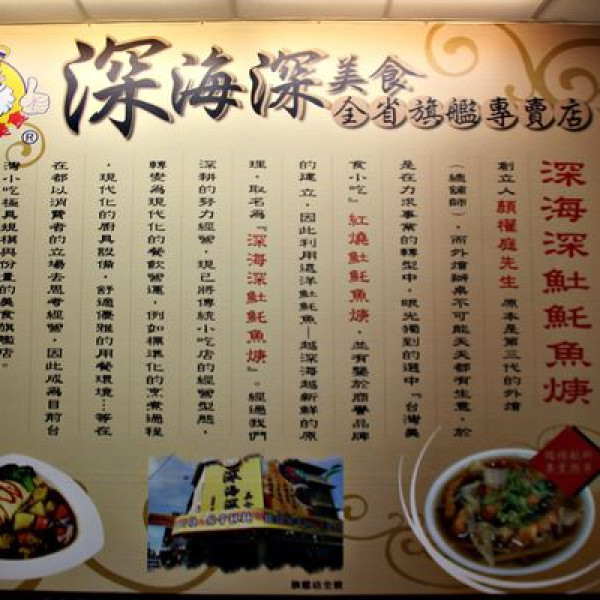 深海深美食
全省旗艦專賣店
®
深海深魠魠魚焿
創立人顏權庭先生 原本是第三代的外燴
(總鋪師),而外燴辦桌不可能天天都有生意,於
是在力求事業的轉型中,眼光獨到的選中『台灣美
食小吃』紅燒魠魠魚焿,並有鑒於商譽品牌
的建立,因此利用遠洋魠魠魚—越深海越新鮮的原
理,取名為『深海深魠魠魚焿』。經過我們
深耕的努力經營,現已將傳統小吃店的經營型態,
轉變為現代化的餐飲營運,例如標準化的烹煮過程
,現代化的廚具設備,舒適優雅的用餐環境…等在
在都以消費者的立場去思考經營,因此成為目前台
灣小吃極具規模與份量的美食旗艦店。
旗艦店全貌